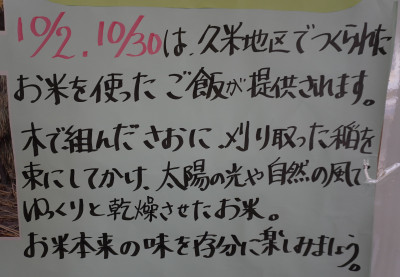 10/2.10/30は、久米地区でつくられた
お米を使った ご飯が提供されます。
木で組んださおに、刈り取った稲を
束にしてかけ、太陽の光や自然の風で
ゆっくりと乾燥させたお米。
お米本来の味を存分に楽しみましょう。